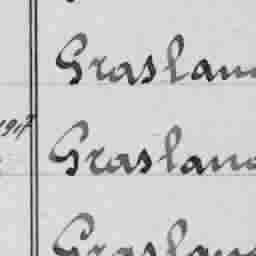 Graslan
1917 Graslan
Graslan